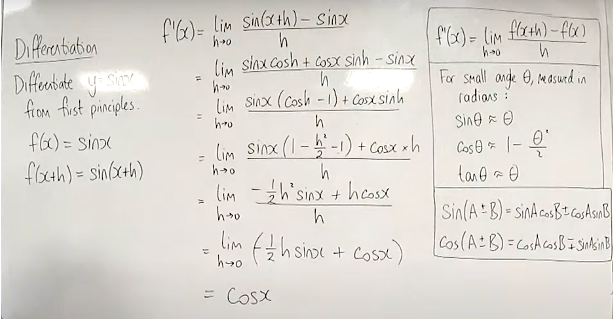 Differentiation
Differentiate y=sinx
from first principles.
f(x) = sinx
f(x+h) = sin(x+h)
f'(x) = lim h→0 sin(x+h) - sinx / h
= lim h→0 sinx cosh + cosx sinh - sinx / h
= lim h→0 sinx (cosh - 1) + cosx sinh / h
= lim h→0 sinx (1 - h²/2 - 1) + cosx × h / h
= lim h→0 -½h² sinx + h cosx / h
= lim h→0 (-½ h sinx + cosx)
= cosx
f'(x) = lim h→0 f(x+h) - f(x) / h
For small angle θ, measured in
radians :
sinθ ≈ θ
cosθ ≈ 1 - θ²/2
tanθ ≈ θ
Sin(A ± B) = sinA cosB ± cosA sinB
Cos(A ± B) = cosA cosB ∓ sinA sinB